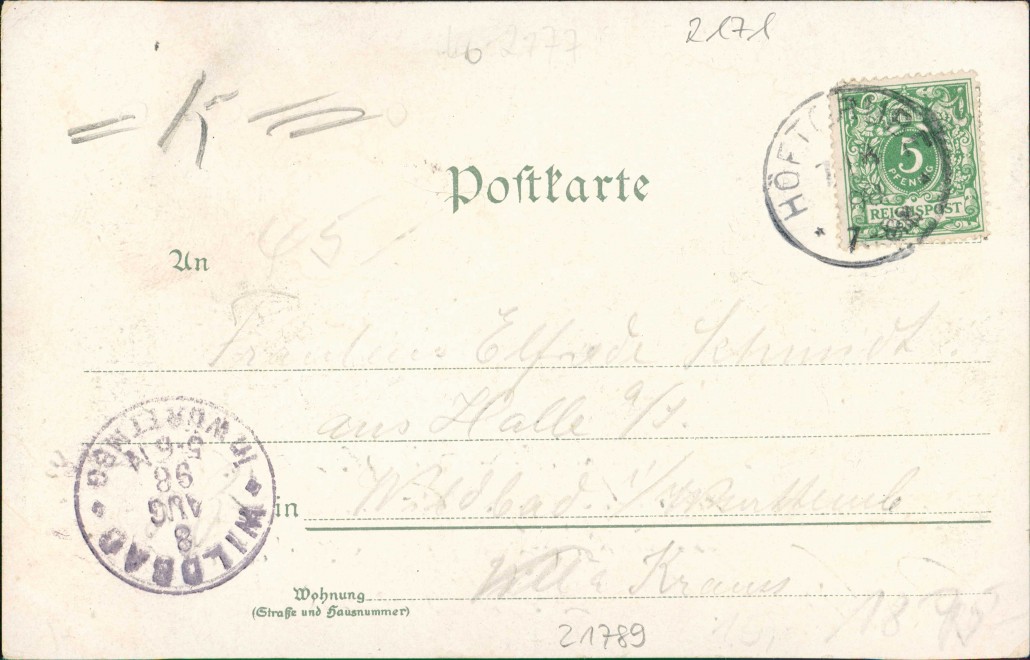 2171
Postkarte
5
PFENNIG
REICHSPOST
HÖFT
7
K
45
An
Fräulein Elfriede Schmidt.
aus Halle a/S.
in Wildbad i/Württemb
Villa Kraus.
Wohnung
(Straße und Hausnummer)
WILDBAD
IN WÜRTTMBG
8
AUG
98
5-6 N
21789